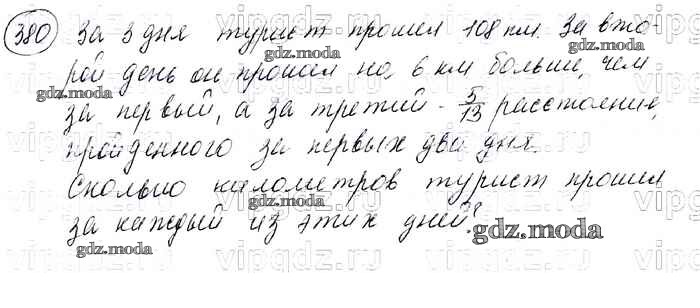 380 За 3 дня турист прошел 108 км. За вто-
рой день он прошел на 6 км больше, чем
за первый, а за третий - 5/13 расстояние,
пройденного за первых два дня.
Сколько километров турист прошел
за каждый из этих дней?
gdz.moda
gdz.moda
gdz.moda
gdz.moda
gdz.moda
gdz.moda
gdz.moda
vipgdz.ru